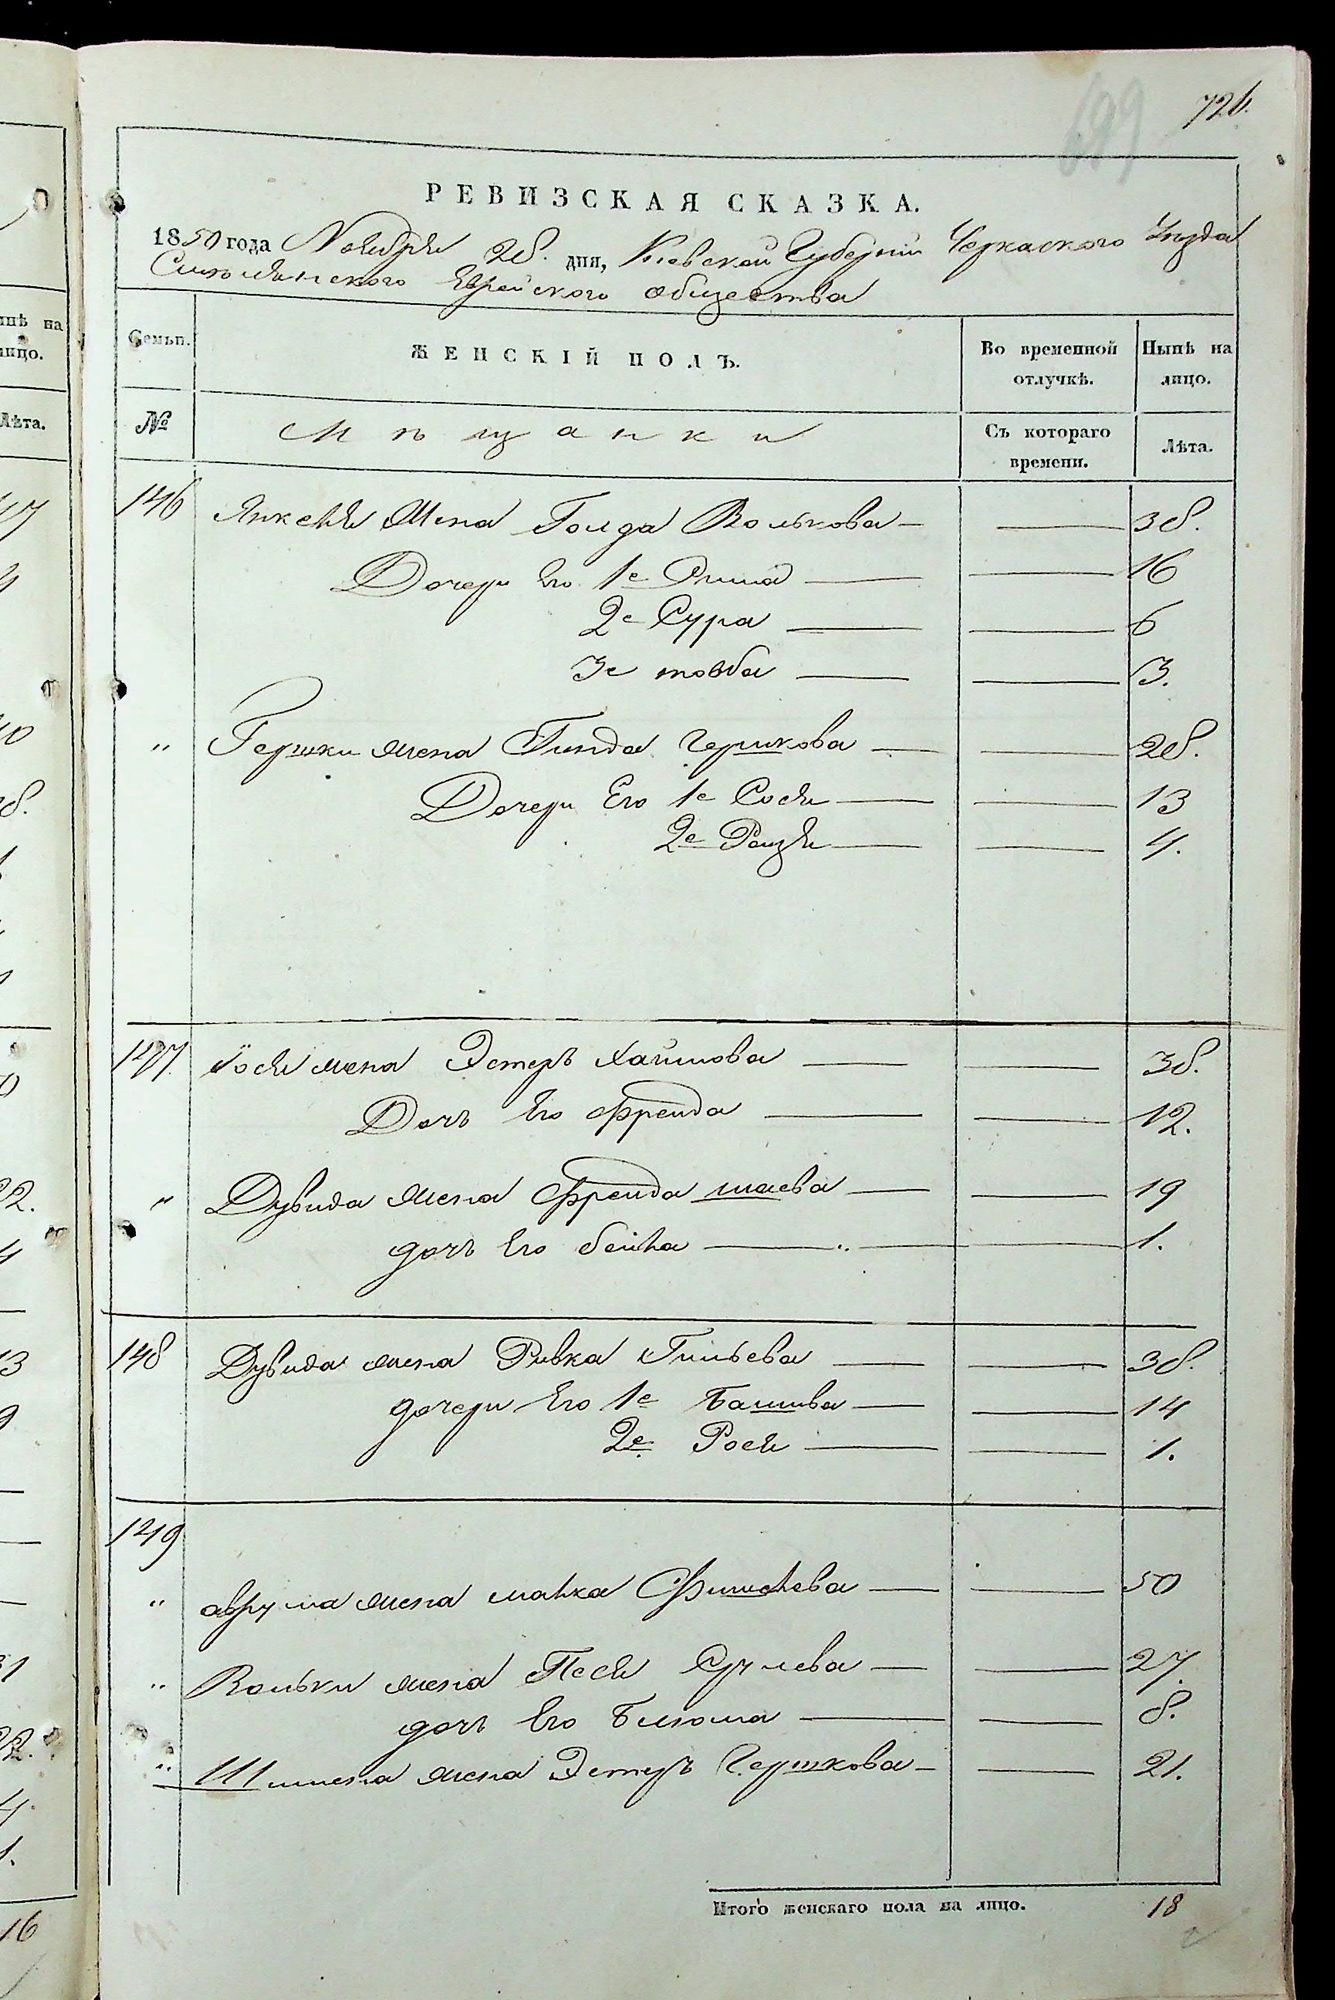 699
726.
РЕВИЗСКАЯ СКАЗКА.
1850 года Ноября 28. дня, Киевской Губернии Черкаского Уезда
Смелянского Еврейского общества
Семьи. ЖЕНСКІЙ ПОЛЪ. Во временной отлучкѣ. Нынѣ на лицо.
№ Мѣщанки Съ котораго времени. Лѣта.
146 Янкеля Жена Голда Волькова — — 38.
Дочери Его 1е — — 16
2е Сура — — 6
3е товба — — 3.
" Гершки жена Гинда Гершкова — — 28.
Дочери Его 1е Сося — — 13
2е Рейзя — — 4.
147. Іося жена Эстеръ Хаимова — — 38.
Дочь Его Фрейда — — 12.
" Дувида жена Фрейда шаева — — 19
дочь Его бейла — " — 1.
148 Дувида жена Ривка Гилева — — 38.
дочери Его 1е Башива — — 14
2е Рося — — 1.
149
" аврума жена малка Фишелева — — 50
" Вольки жена Песя Срулева — — 27.
дочь Его Блюма — — 8.
" Шимена жена Эстеръ Гершкова — — 21.
Итого женскаго пола на лицо. 18
нѣ на
лицо.
Лѣта.
16